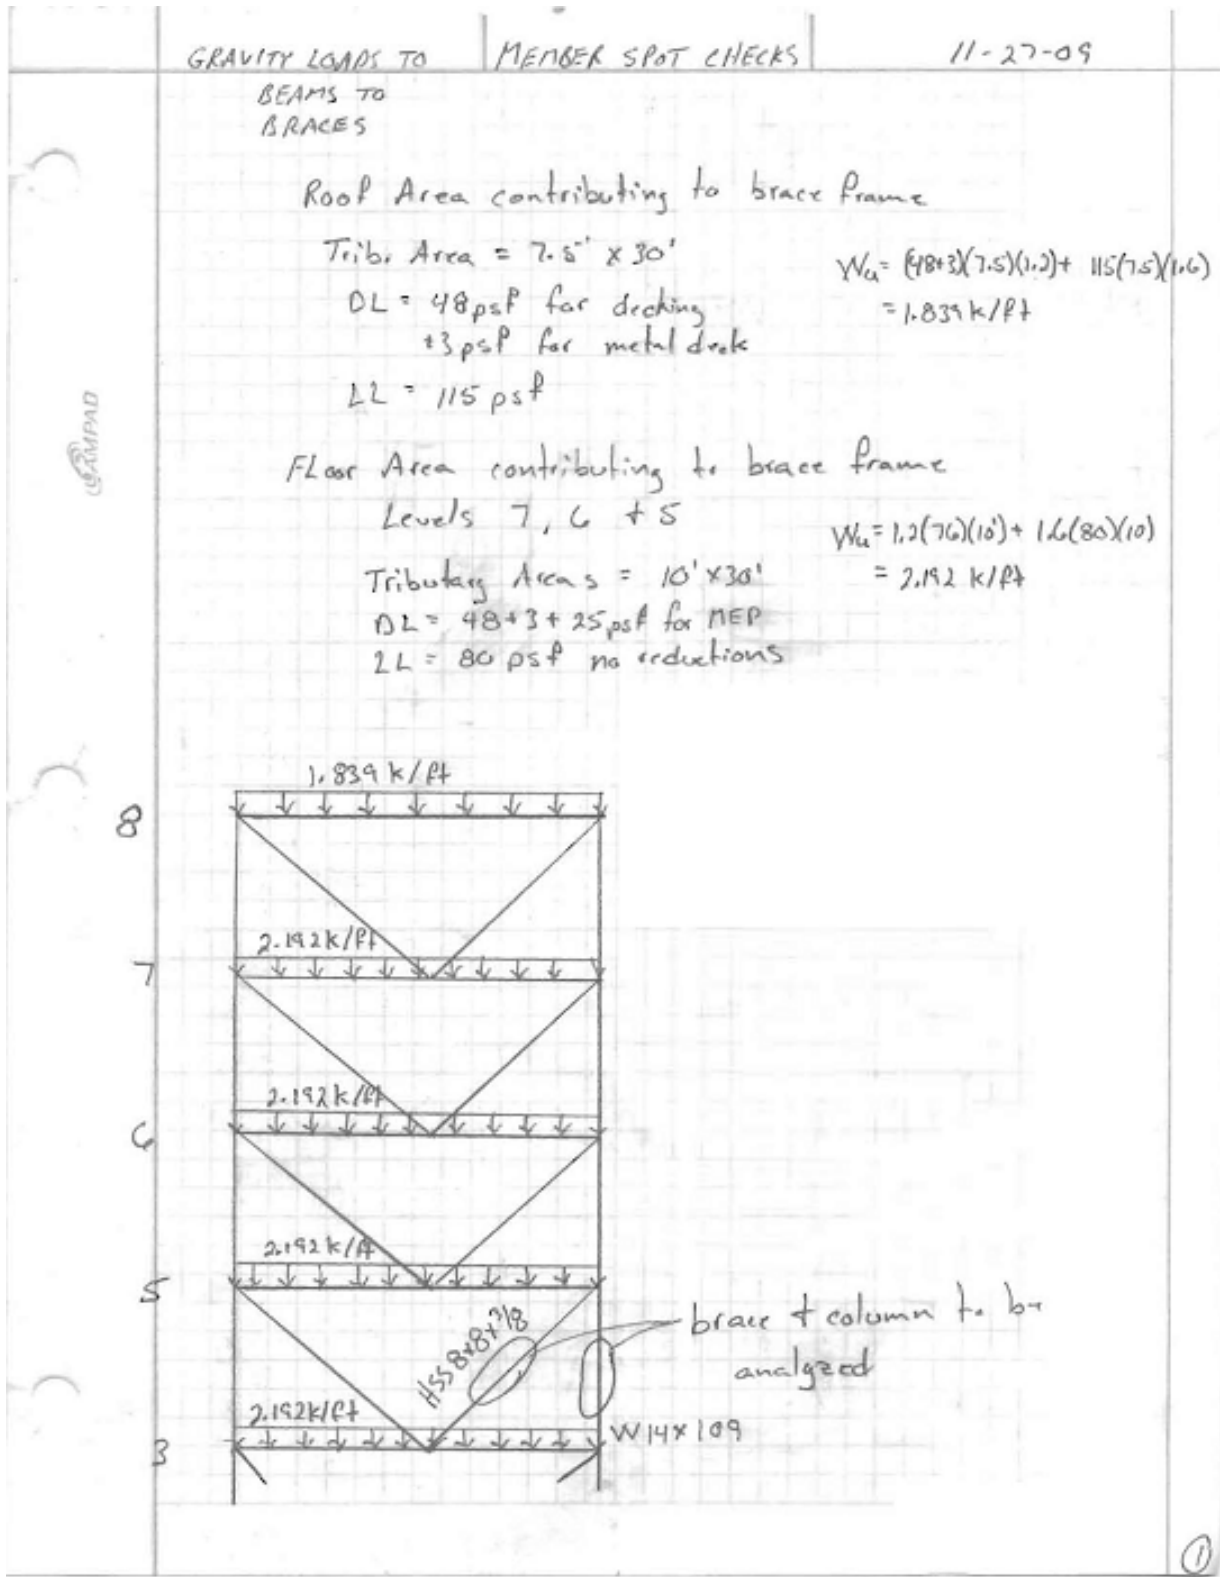 GRAVITY LOADS TO BEAMS TO BRACES
MEMBER SPOT CHECKS
11-27-09
Roof Area contributing to brace frame
Trib. Area = 7.5' x 30'
DL = 48 psf for decking
+3 psf for metal deck
LL = 115 psf
Wu = (48+3)(7.5)(1.2) + 115(7.5)(1.6)
= 1.839 k/ft
Floor Area contributing to brace frame
Levels 7, 6 + 5
Tributary Areas = 10' x 30'
DL = 48 + 3 + 25 psf for MEP
LL = 80 psf no reductions
Wu = 1.2(76)(10') + 1.6(80)(10)
= 2.192 k/ft
AMPAD
1.839 k/ft
8
2.192 k/ft
7
2.192 k/ft
6
2.192 k/ft
5
HSS 8x8x3/8
brace + column to be
analyzed
2.192 k/ft
W14x109
3
1